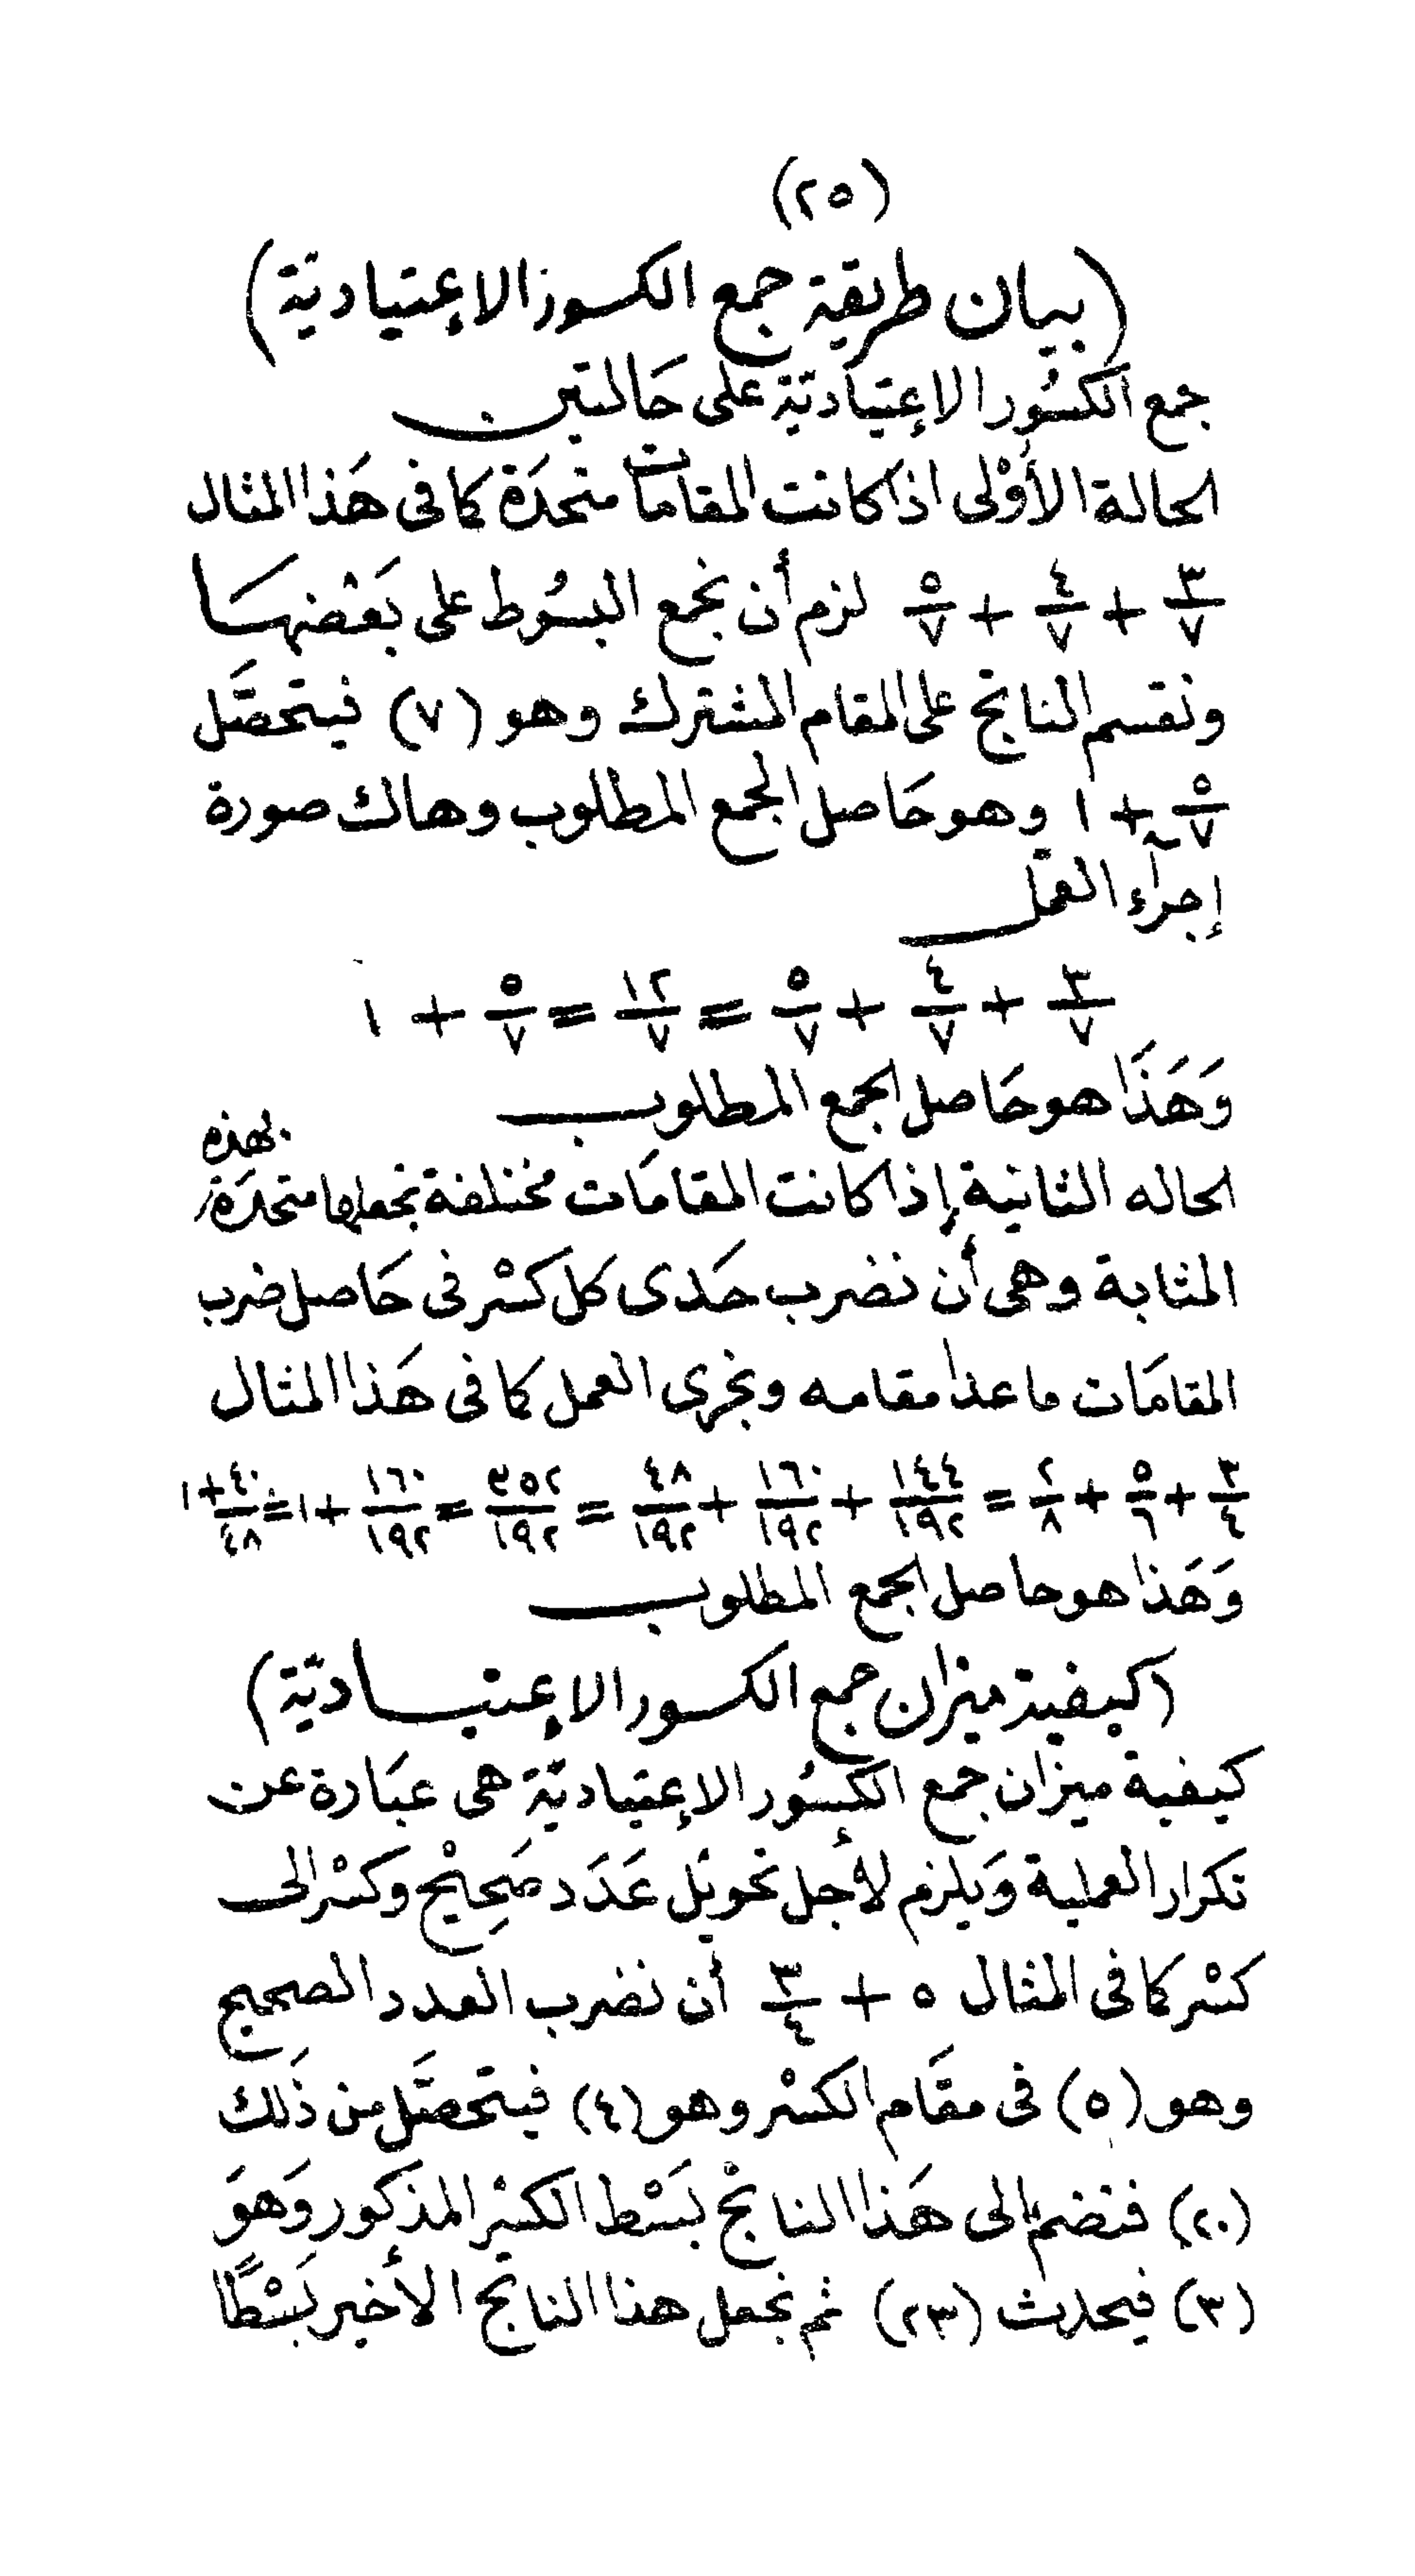 (٢٥)
(بيان طريقة جمع الكسور الإعتيادية)
جمع الكسُور الإعتيادية على حَالتين
الحالة الأُوْلى اذا كانت المقامات متحدَة كما فى هَذا المثال
٣/٧ + ٤/٧ + ٥/٧ لزم أن نجمع البسُوط على بَعْضهَا
ونقسم الناتج على المقام المشترك وهو (٧) فيتحصَّل
٥/٧ + ١ وهو حَاصل الجمع المطلوب وهاك صورة
إجرآء العمَل
٣/٧ + ٤/٧ + ٥/٧ = ١٢/٧ = ٥/٧ + ١
وَهَذَا هو حَاصل الجمع المطلوب
الحاله الثانية إذا كانت المقامَات مختلفة نجعلها متحدَة بهذه
المثابة وهى أن نضرب حَدى كل كسْر فى حَاصل ضرب
المقامَات ما عدا مقامه ونجرى العمل كما فى هَذا المثال
٣/٤ + ٥/٦ + ٢/٨ = ١٤٤/١٩٢ + ١٦٠/١٩٢ + ٤٨/١٩٢ = ٣٥٢/١٩٢ = ١٦٠/١٩٢ + ١ = ٤٠/٤٨ + ١
وَهَذا هو حاصل الجمع المطلوب
(كيفية ميزان جمع الكسور الإعتيـاديّة)
كيفية ميزان جمع الكسُور الإعتياديّة هى عبَارة عن
تكرار العملية وَيلزم لأجل تحويْل عَدَد صَحِيْح وكسْر الى
كسْر كما فى المثال ٥ + ٣/٤ أن نضرب العدد الصحيح
وهو (٥) فى مقَام الكسْر وهو (٤) فيتحصَّل من ذَلك
(٢٠) فنضم الى هَذا الناتج بَسْط الكسْر المذكور وَهوَ
(٣) فيحدث (٢٣) ثم نجعل هذا الناتج الأخير بَسْطًا